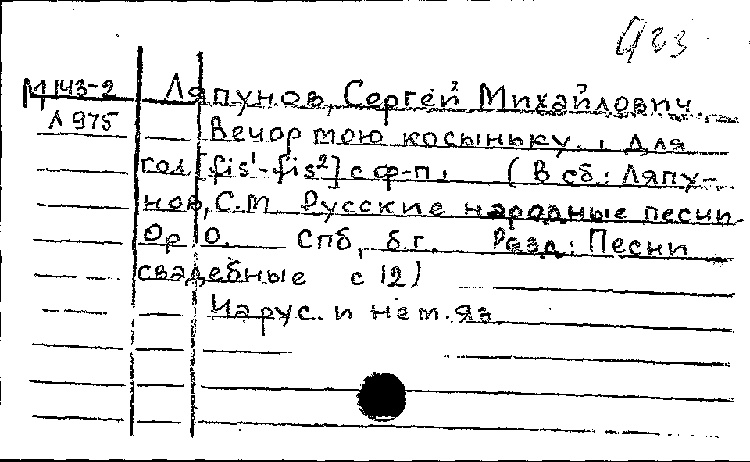 923
М 143-2 Ляпунов, Сергей Михайлович.
Л 975 Вечор мою косыньку. : Для
гол. [fis¹-fis²] с ф-п. (В сб.: Ляпу-
нов, С.М. Русские народные песни.
Op 10. Спб, б.г. Разд: Песни
свадебные с 12)
На рус. и нем. яз.